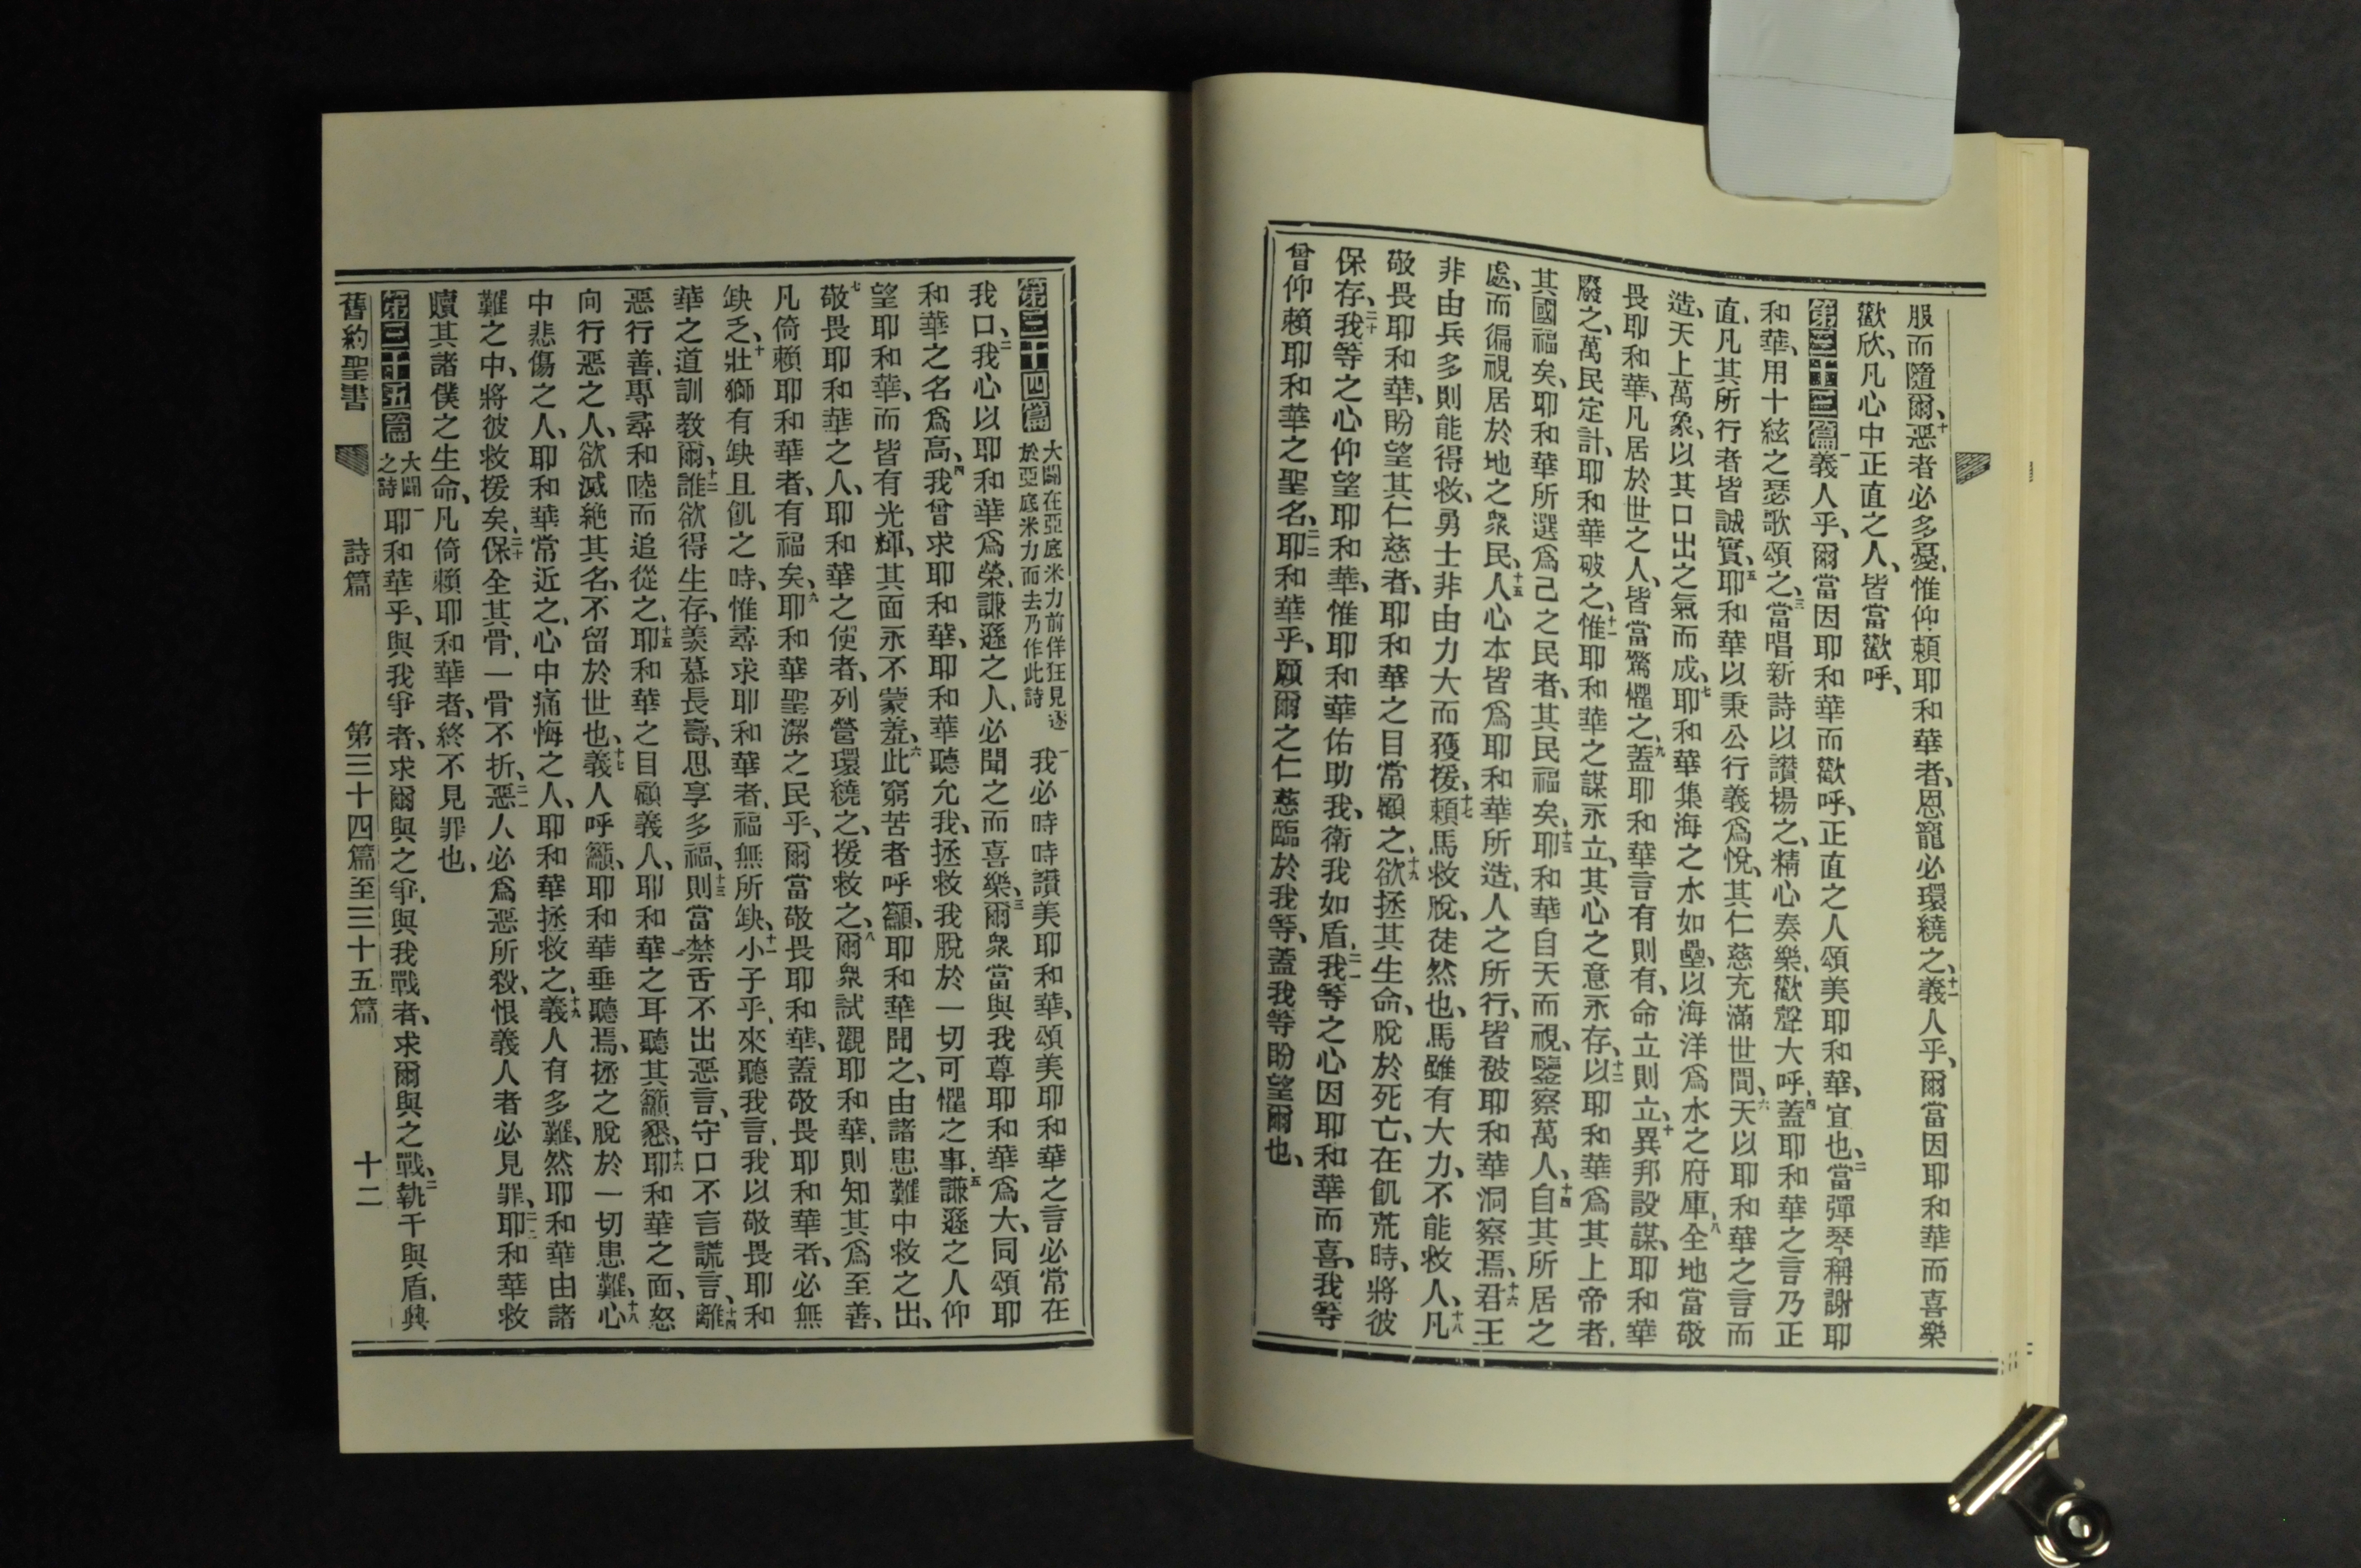 服而隨爾、十惡者必多憂、惟仰賴耶和華者、恩寵必環繞之、十一義人乎、爾當因耶和華而喜樂
歡欣、凡心中正直之人、皆當歡呼、
第三十三篇 一義人乎、爾當因耶和華而歡呼、正直之人頌美耶和華、宜也、二當彈琴稱謝耶
和華、用十絃之瑟歌頌之、三當唱新詩以讚揚之、精心奏樂、歡聲大呼、四蓋耶和華之言乃正
直、凡其所行者皆誠實、五耶和華以秉公行義爲悅、其仁慈充滿世間、六天以耶和華之言而
造、天上萬象、以其口出之氣而成、七耶和華集海之水如壘、以海洋爲水之府庫、八全地當敬
畏耶和華、凡居於世之人、皆當驚懼之、九蓋耶和華言有則有、命立則立、十異邦設謀、耶和華
廢之、萬民定計、耶和華破之、十一惟耶和華之謀永立、其心之意永存、十二以耶和華爲其上帝者、
其國福矣、耶和華所選爲己之民者、其民福矣、十三耶和華自天而視、鑒察萬人、十四自其所居之
處、而徧視居於地之衆民、十五人心本皆爲耶和華所造、人之所行、皆被耶和華洞察焉、十六君王
非由兵多則能得救、勇士非由力大而獲援、十七賴馬救脫、徒然也、馬雖有大力、不能救人、十八凡
敬畏耶和華、盼望其仁慈者、耶和華之目常顧之、十九欲拯其生命、脫於死亡、在飢荒時、將彼
保存、二十我等之心仰望耶和華、惟耶和華佑助我、衛我如盾、二一我等之心因耶和華而喜、我等
曾仰賴耶和華之聖名、二二耶和華乎、願爾之仁慈臨於我等、蓋我等盼望爾也、
第三十四篇 大闢在亞底米力前佯狂見逐於亞底米力而去乃作此詩 一我必時時讚美耶和華、頌美耶和華之言必常在
我口、二我心以耶和華爲榮、謙遜之人、必聞之而喜樂、三爾衆當與我尊耶和華爲大、同頌耶
和華之名爲高、四我曾求耶和華、耶和華聽允我、拯救我脫於一切可懼之事、五謙遜之人仰
望耶和華、而皆有光輝、其面永不蒙羞、六此窮苦者呼籲、耶和華聞之、由諸患難中救之出、
七敬畏耶和華之人、耶和華之使者、列營環繞之、援救之、八爾衆試觀耶和華、則知其爲至善、
凡倚賴耶和華者、有福矣、九耶和華聖潔之民乎、爾當敬畏耶和華、蓋敬畏耶和華者、必無
缺乏、十壯獅有缺且飢之時、惟尋求耶和華者、福無所缺、十一小子乎、來聽我言、我以敬畏耶和
華之道訓教爾、十二誰欲得生存、羨慕長壽、思享多福、十三則當禁舌不出惡言、守口不言謊言、十四離
惡行善、專尋和睦而追從之、十五耶和華之目顧義人、耶和華之耳聽其籲懇、十六耶和華之面、怒
向行惡之人、欲滅絕其名、不留於世也、十七義人呼籲、耶和華垂聽焉、拯之脫於一切患難、十八心
中悲傷之人、耶和華常近之、心中痛悔之人、耶和華拯救之、十九義人有多難、然耶和華由諸
難之中、將彼救援矣、二十保全其骨、一骨不折、二一惡人必爲惡所殺、恨義人者必見罪、二二耶和華救
贖其諸僕之生命、凡倚賴耶和華者、終不見罪也、
第三十五篇 大闢之詩 一耶和華乎、與我爭者、求爾與之爭、與我戰者、求爾與之戰、二執干與盾、興
舊約聖書 詩篇 第三十四篇至三十五篇 十二